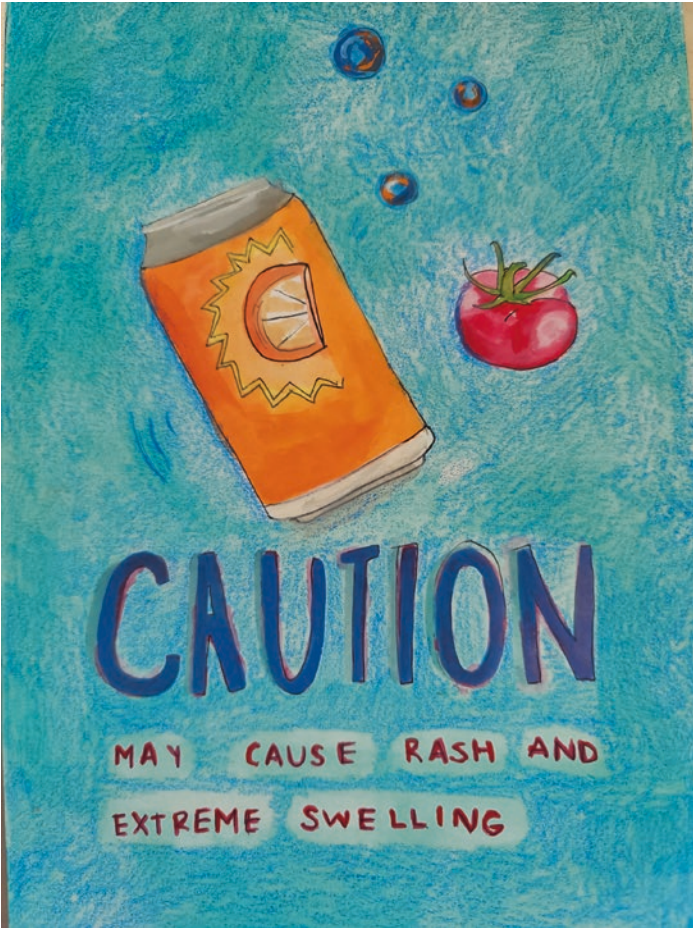 CAUTION
MAY CAUSE RASH AND
EXTREME SWELLING